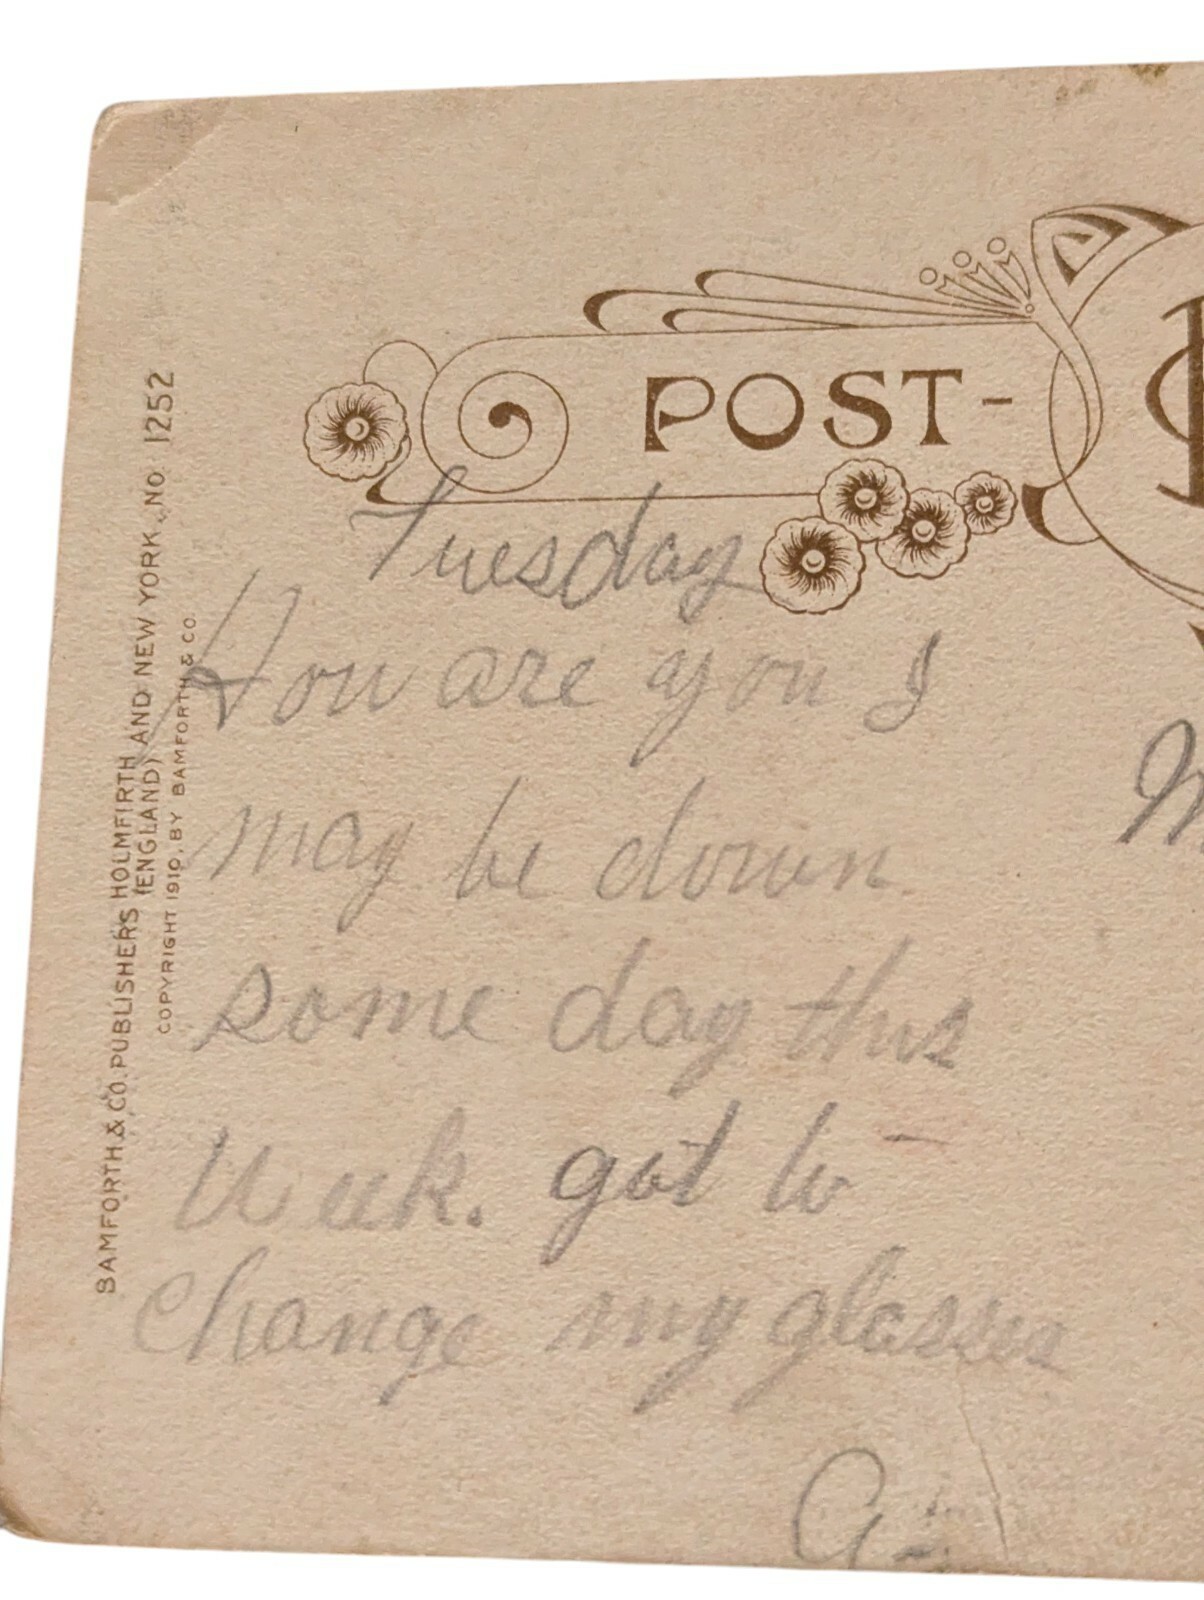 POST-
Tuesday
How are you I
may be down
some day this
Week. got to
Change my glasses
BAMFORTH & CO. PUBLISHERS HOLMFIRTH AND NEW YORK. NO 1252
(ENGLAND)
COPYRIGHT 1910, BY BAMFORTH & CO.